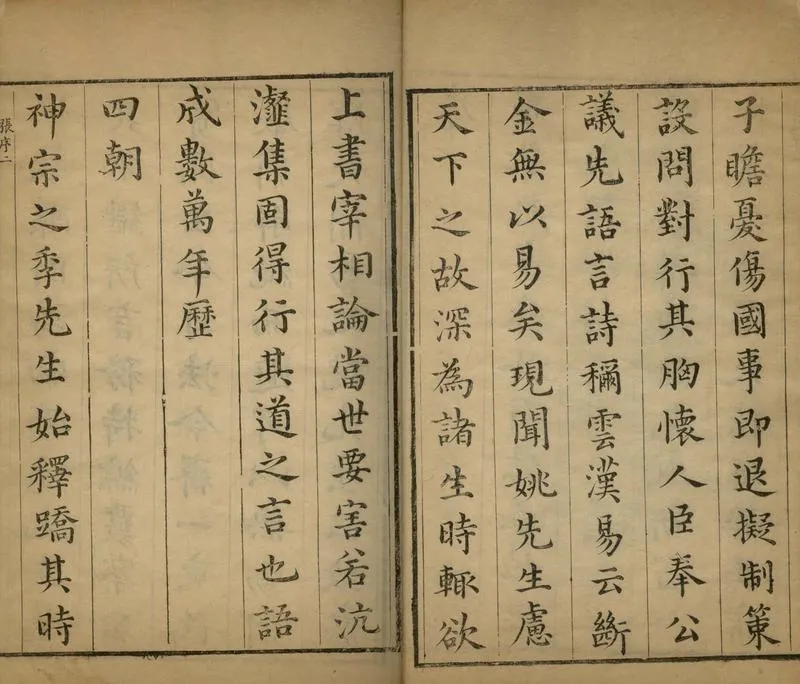 子瞻憂傷國事即退擬制策
設問對行其胸懷人臣奉公
議先語言詩稱雲漢易云斷
金無以易矣現聞姚先生慮
天下之故深為諸生時輙欲
上書宰相論當世要害若沆
瀣集固得行其道之言也語
成數萬年歷
四朝
神宗之季先生始釋蹻其時
張序二